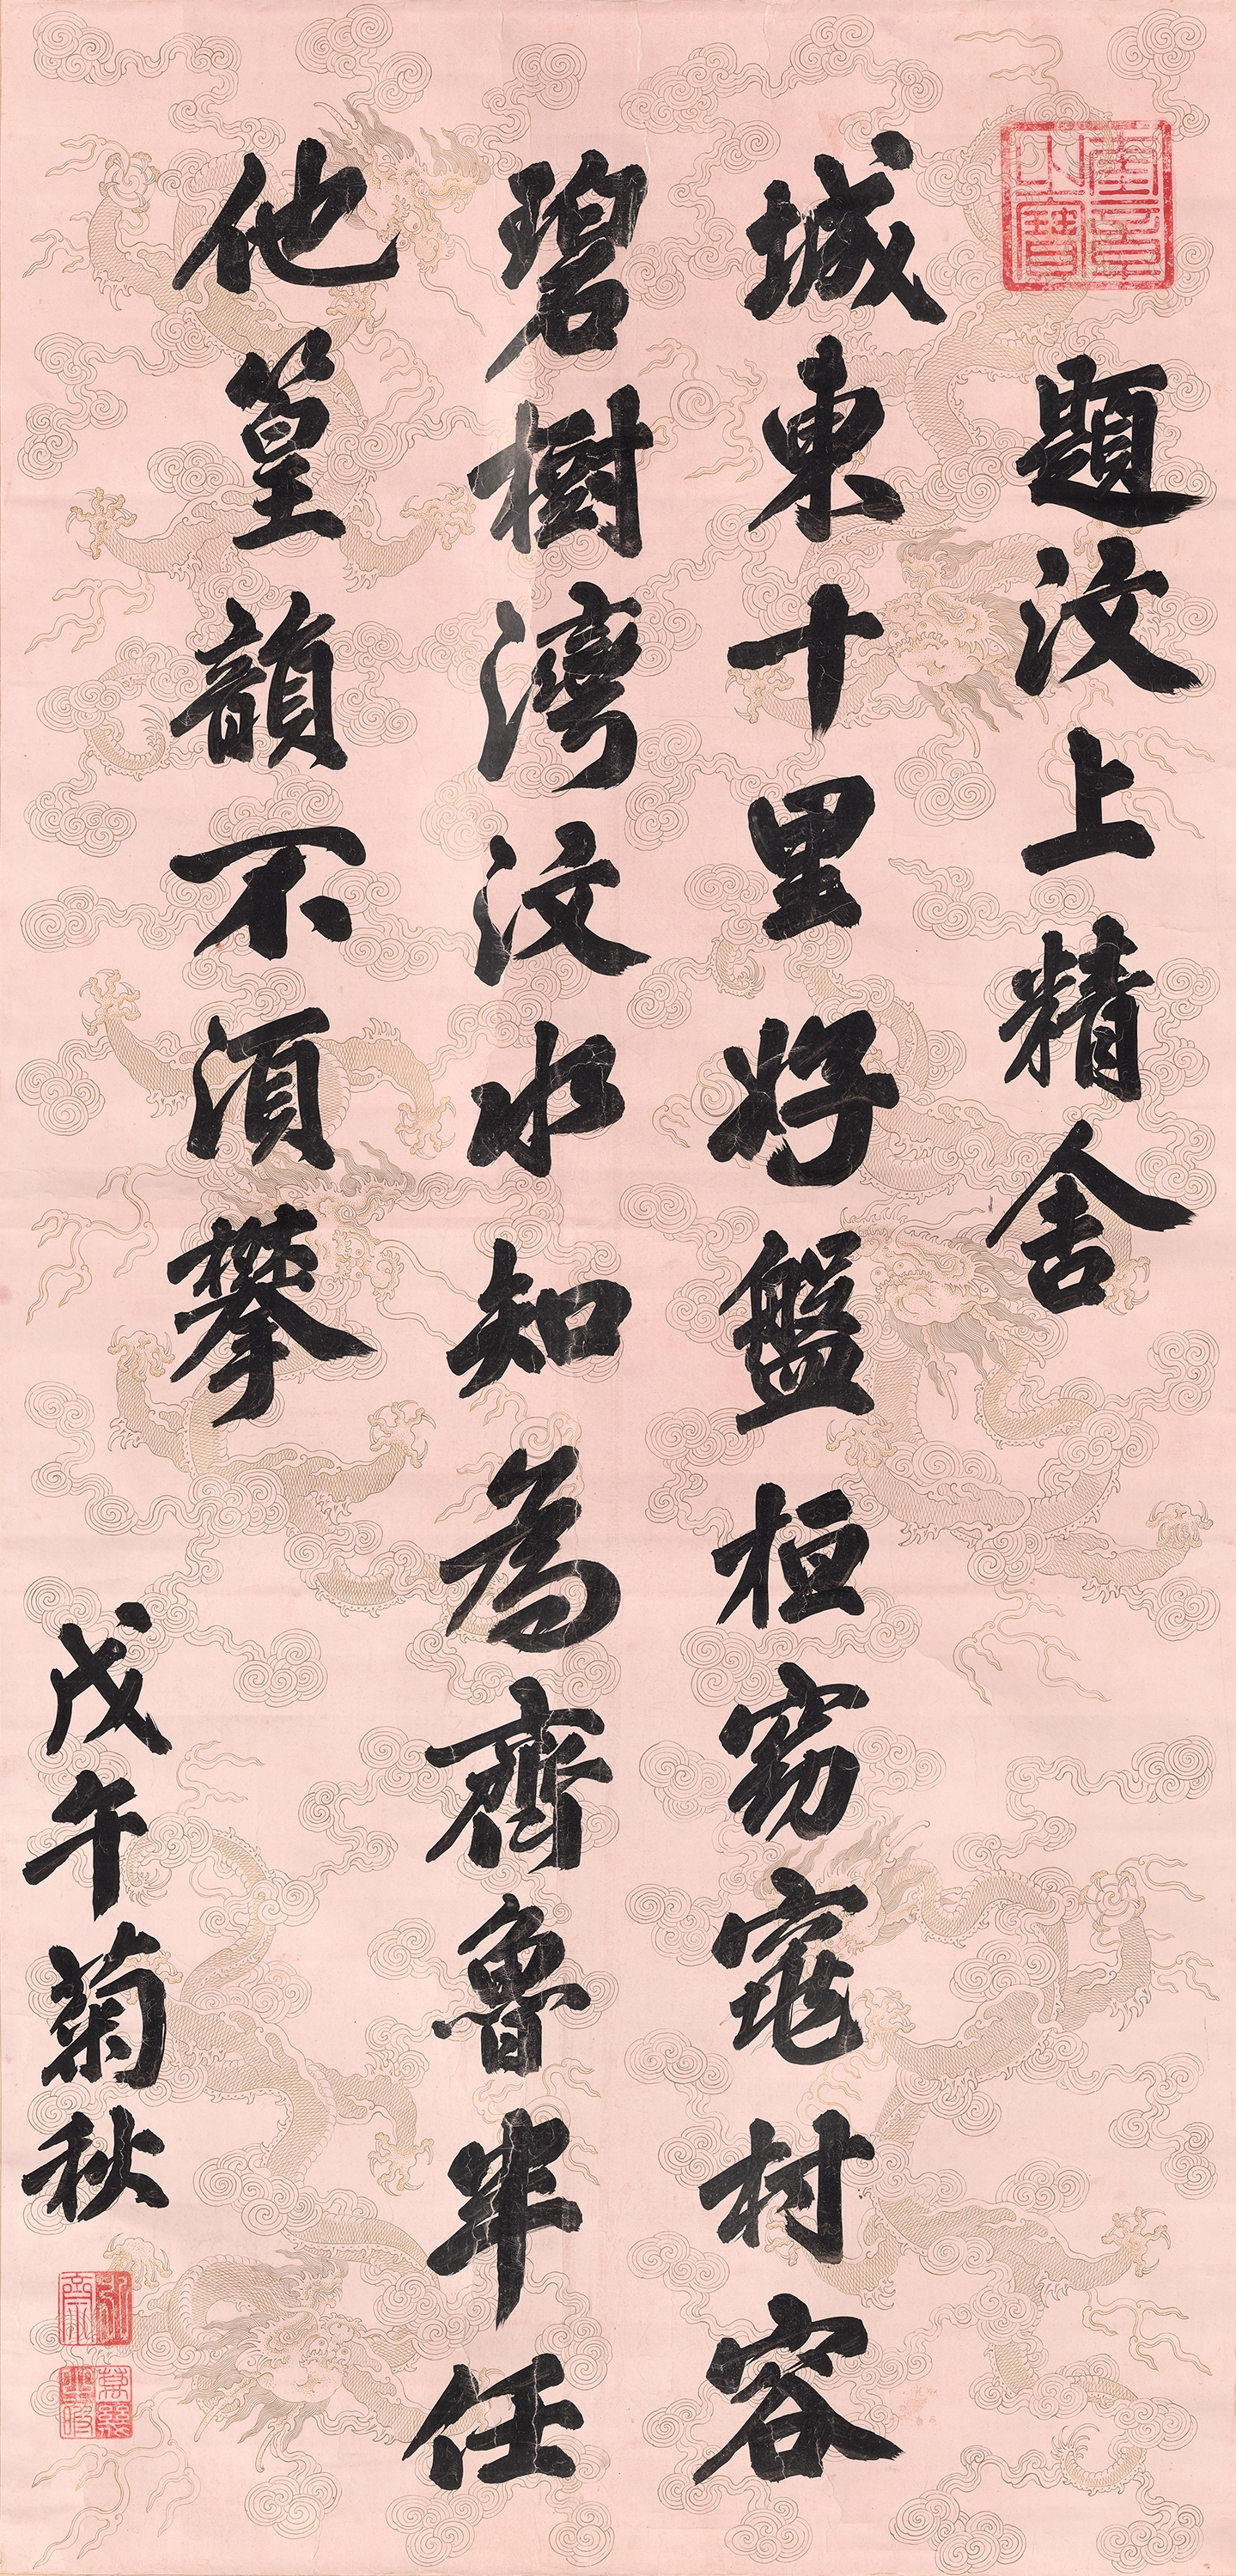 題汶上精舍
城東十里好盤桓窈窕村容
碧樹灣汶水知為齊魯半任
他篁韻不須攀
戊午菊秋